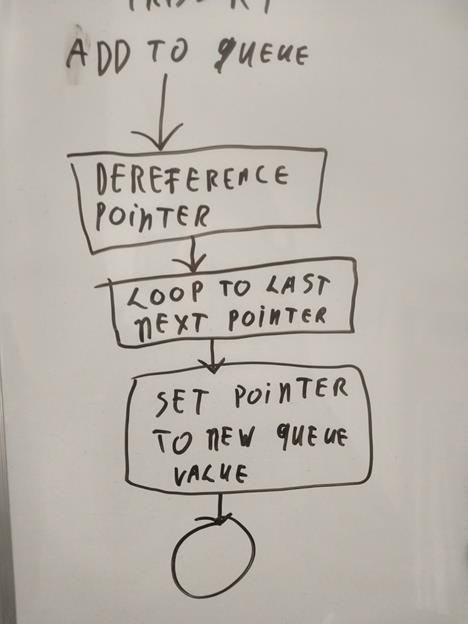 ADD TO QUEUE
DEREFERENCE
POINTER
LOOP TO LAST
NEXT POINTER
SET POINTER
TO NEW QUEUE
VALUE